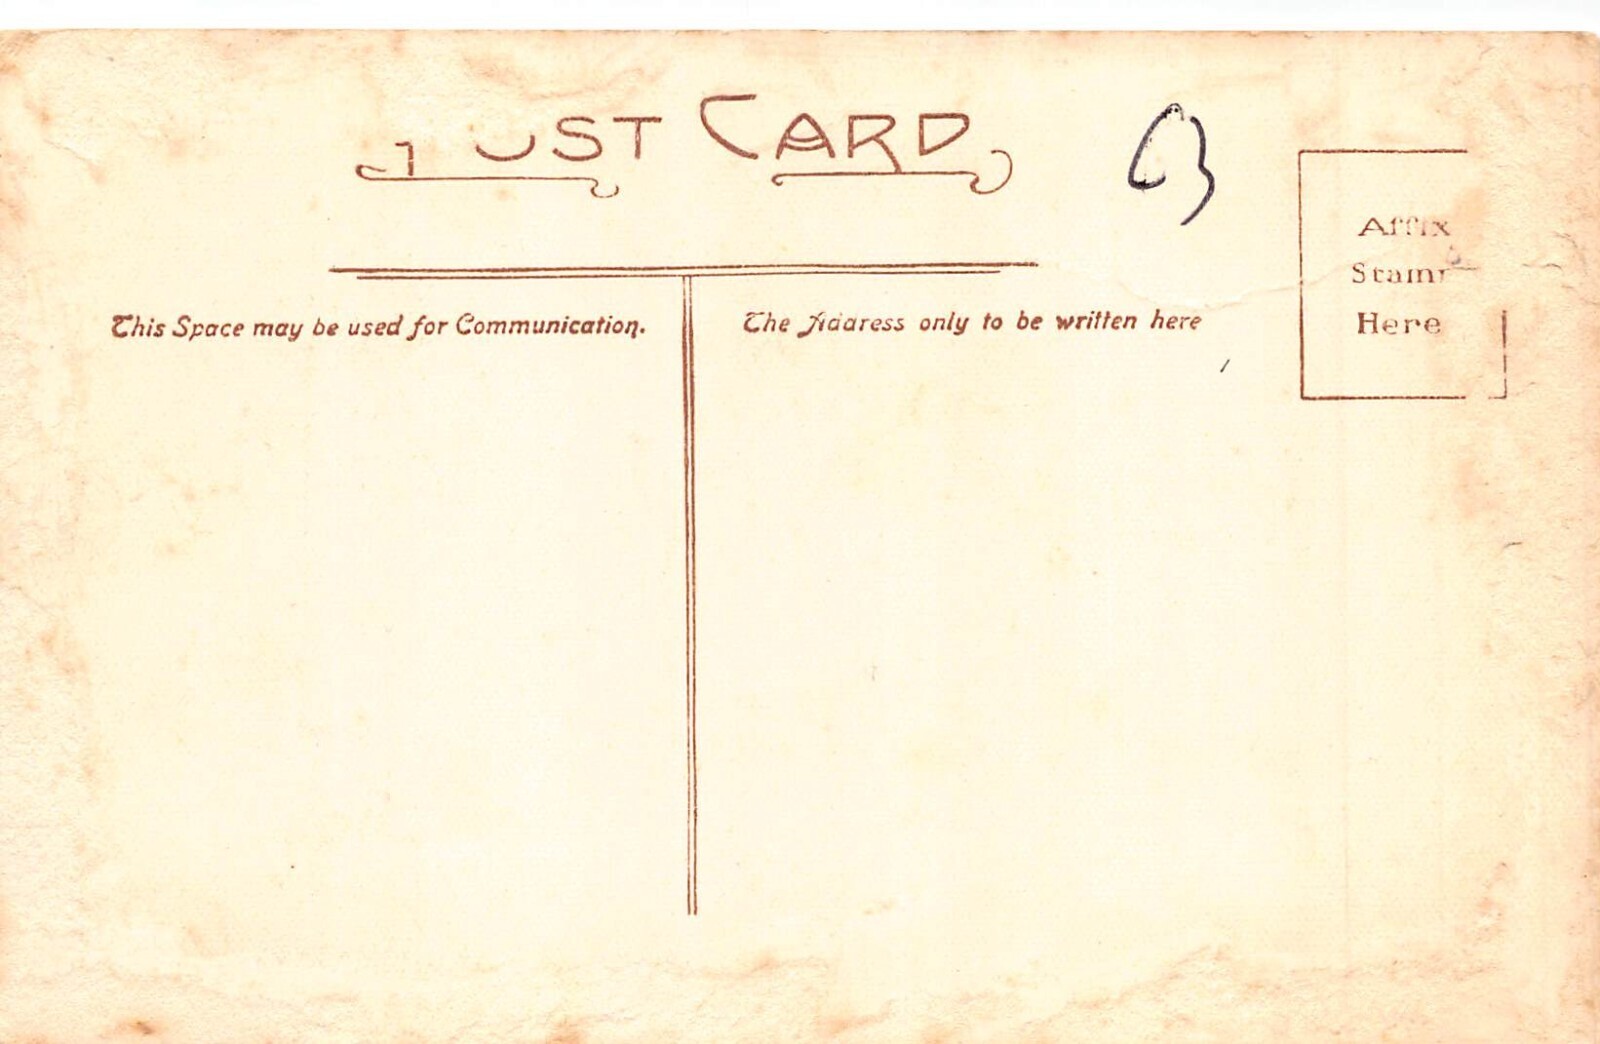 POST CARD
Affix
Stamp
Here
This Space may be used for Communication.
The Address only to be written here